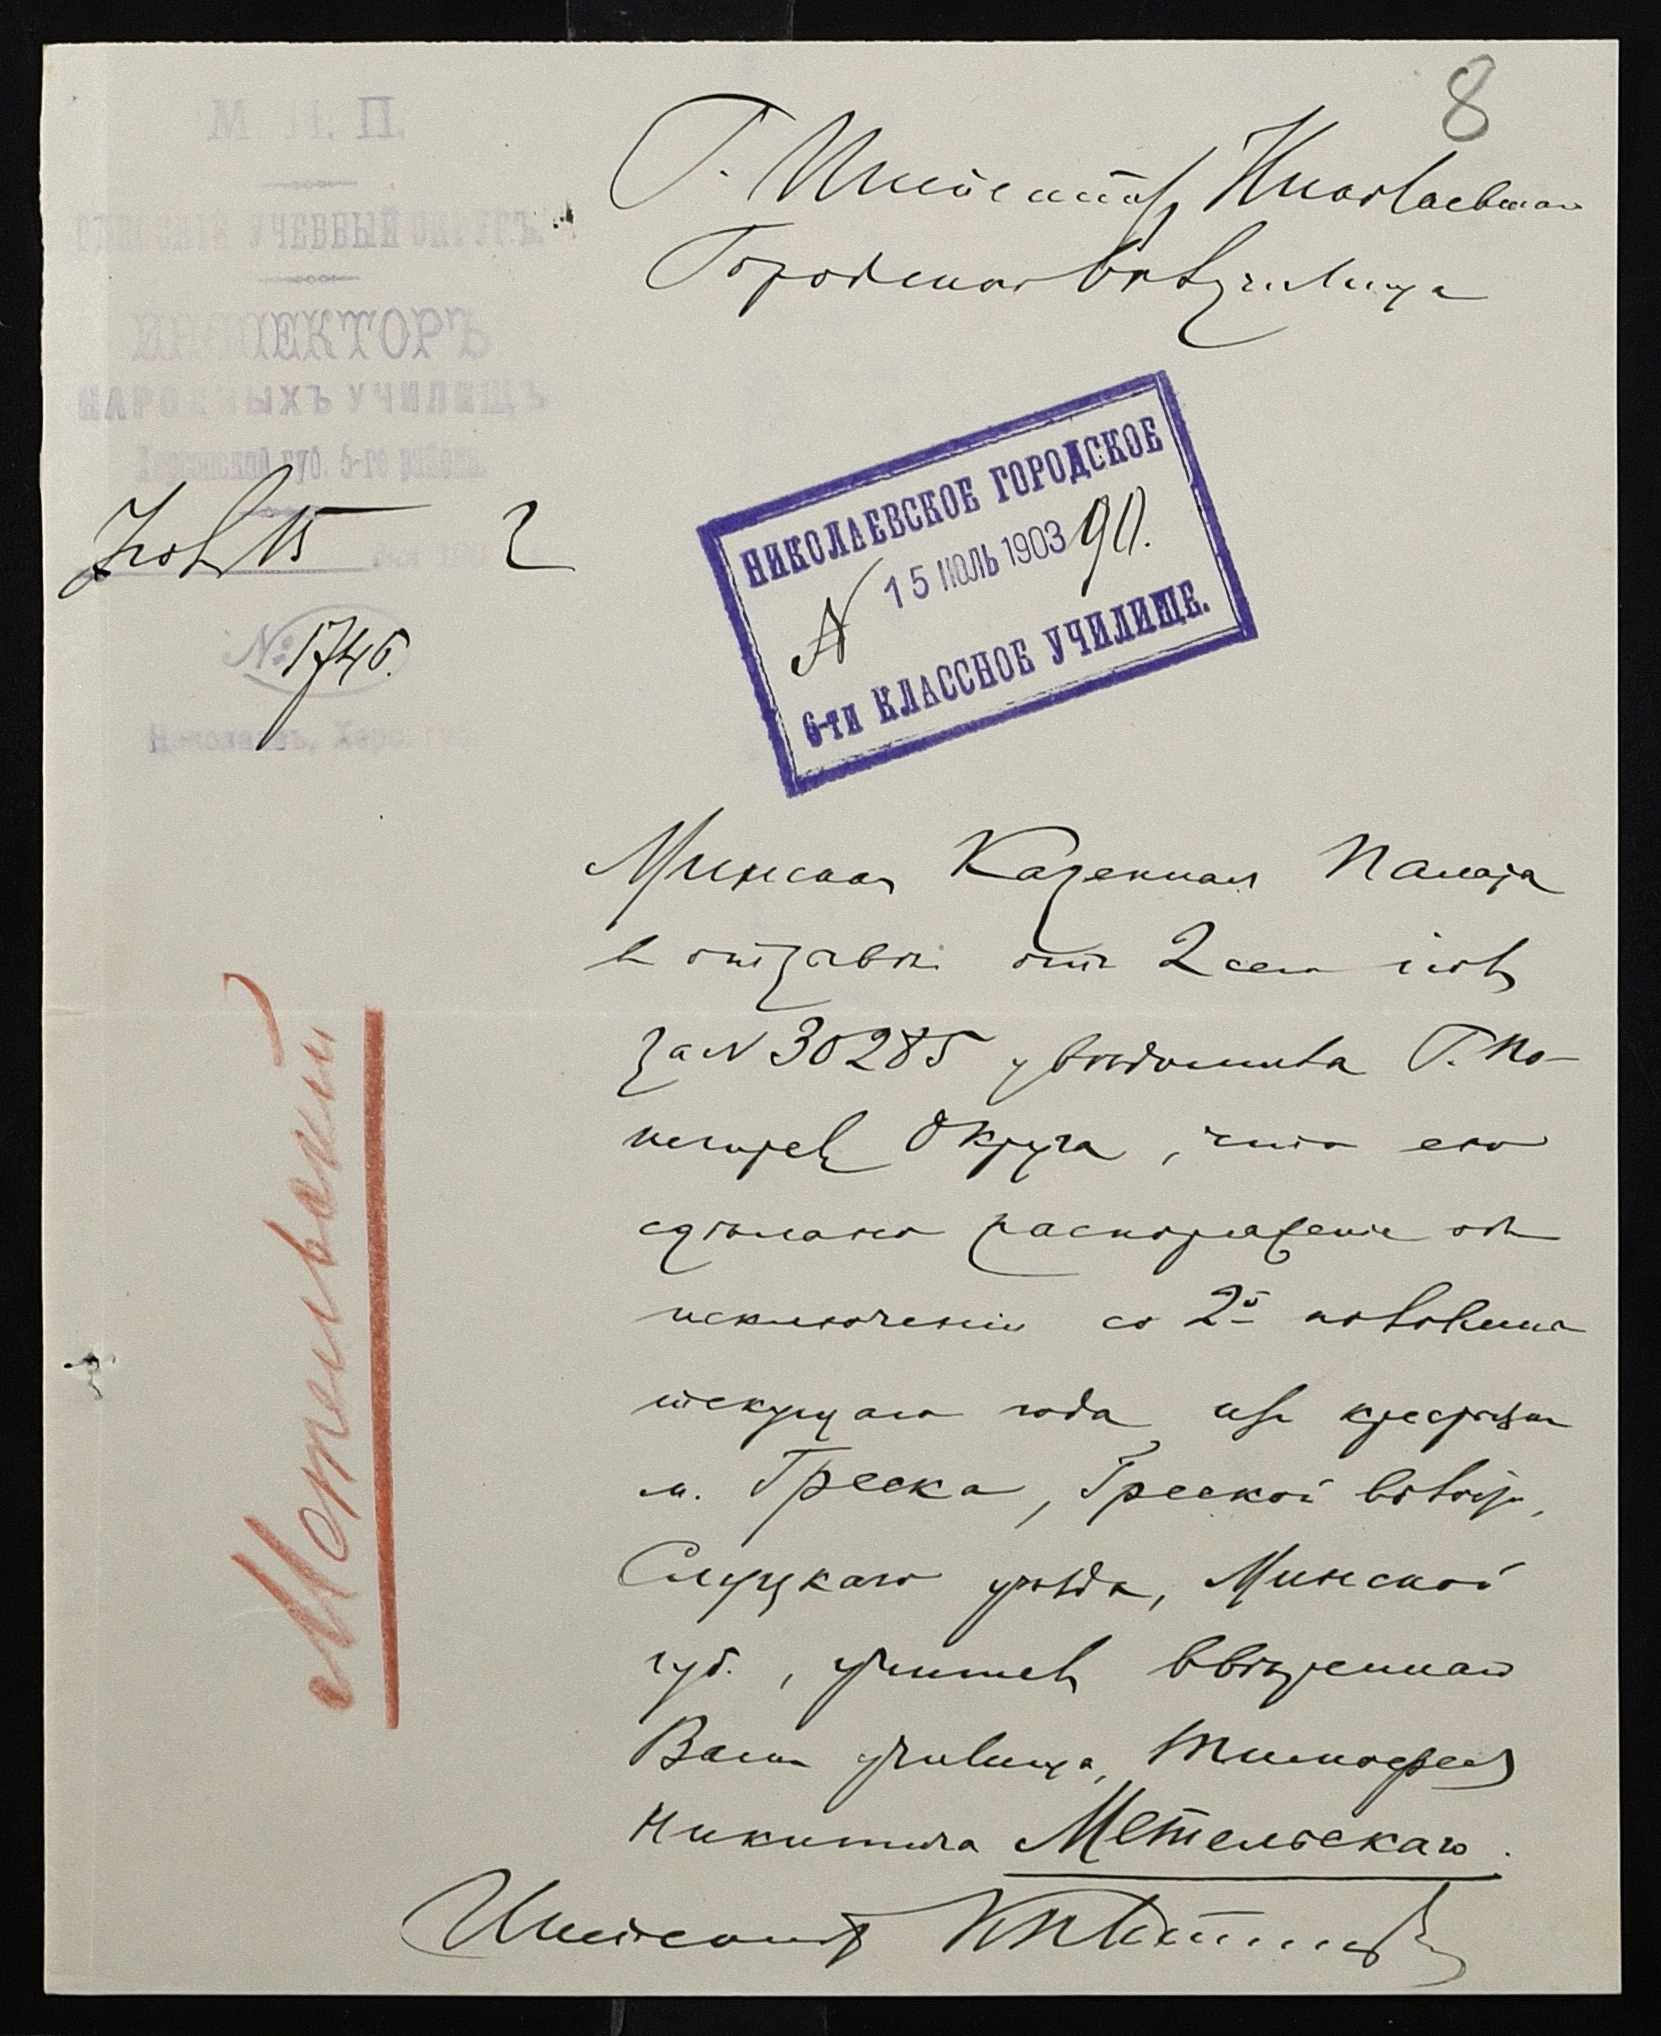 8
М. Н. П.
ОДЕССКІЙ УЧЕБНЫЙ ОКРУГЪ.
ИНСПЕКТОРЪ
НАРОДНЫХЪ УЧИЛИЩЪ
Херсонской губ. 6-го района.
Іюля 15 дня 190
№ 1746.
Николаевъ, Херс.
Г. Инспектору Николаевскаго
Городского училища
НИКОЛАЕВСКОЕ ГОРОДСКОЕ
15 ІЮЛЬ 1903
N 90.
6-ти КЛАССНОЕ УЧИЛИЩЕ.
Минская Казенная Палата
въ отзывѣ отъ 2 сего іюля
за N 30285 увѣдомила Г. По-
печителя Округа, что ею
сдѣлано распоряженіе объ
исключеніи со 2й половины
текущаго года изъ крестьянъ
м. Греска, Греской волости,
Слуцкаго уѣзда, Минской
губ., учителя ввѣреннаго
Вамъ училища, Тимофея
Никитича Метельскаго.
Инспекторъ
Мотельскій